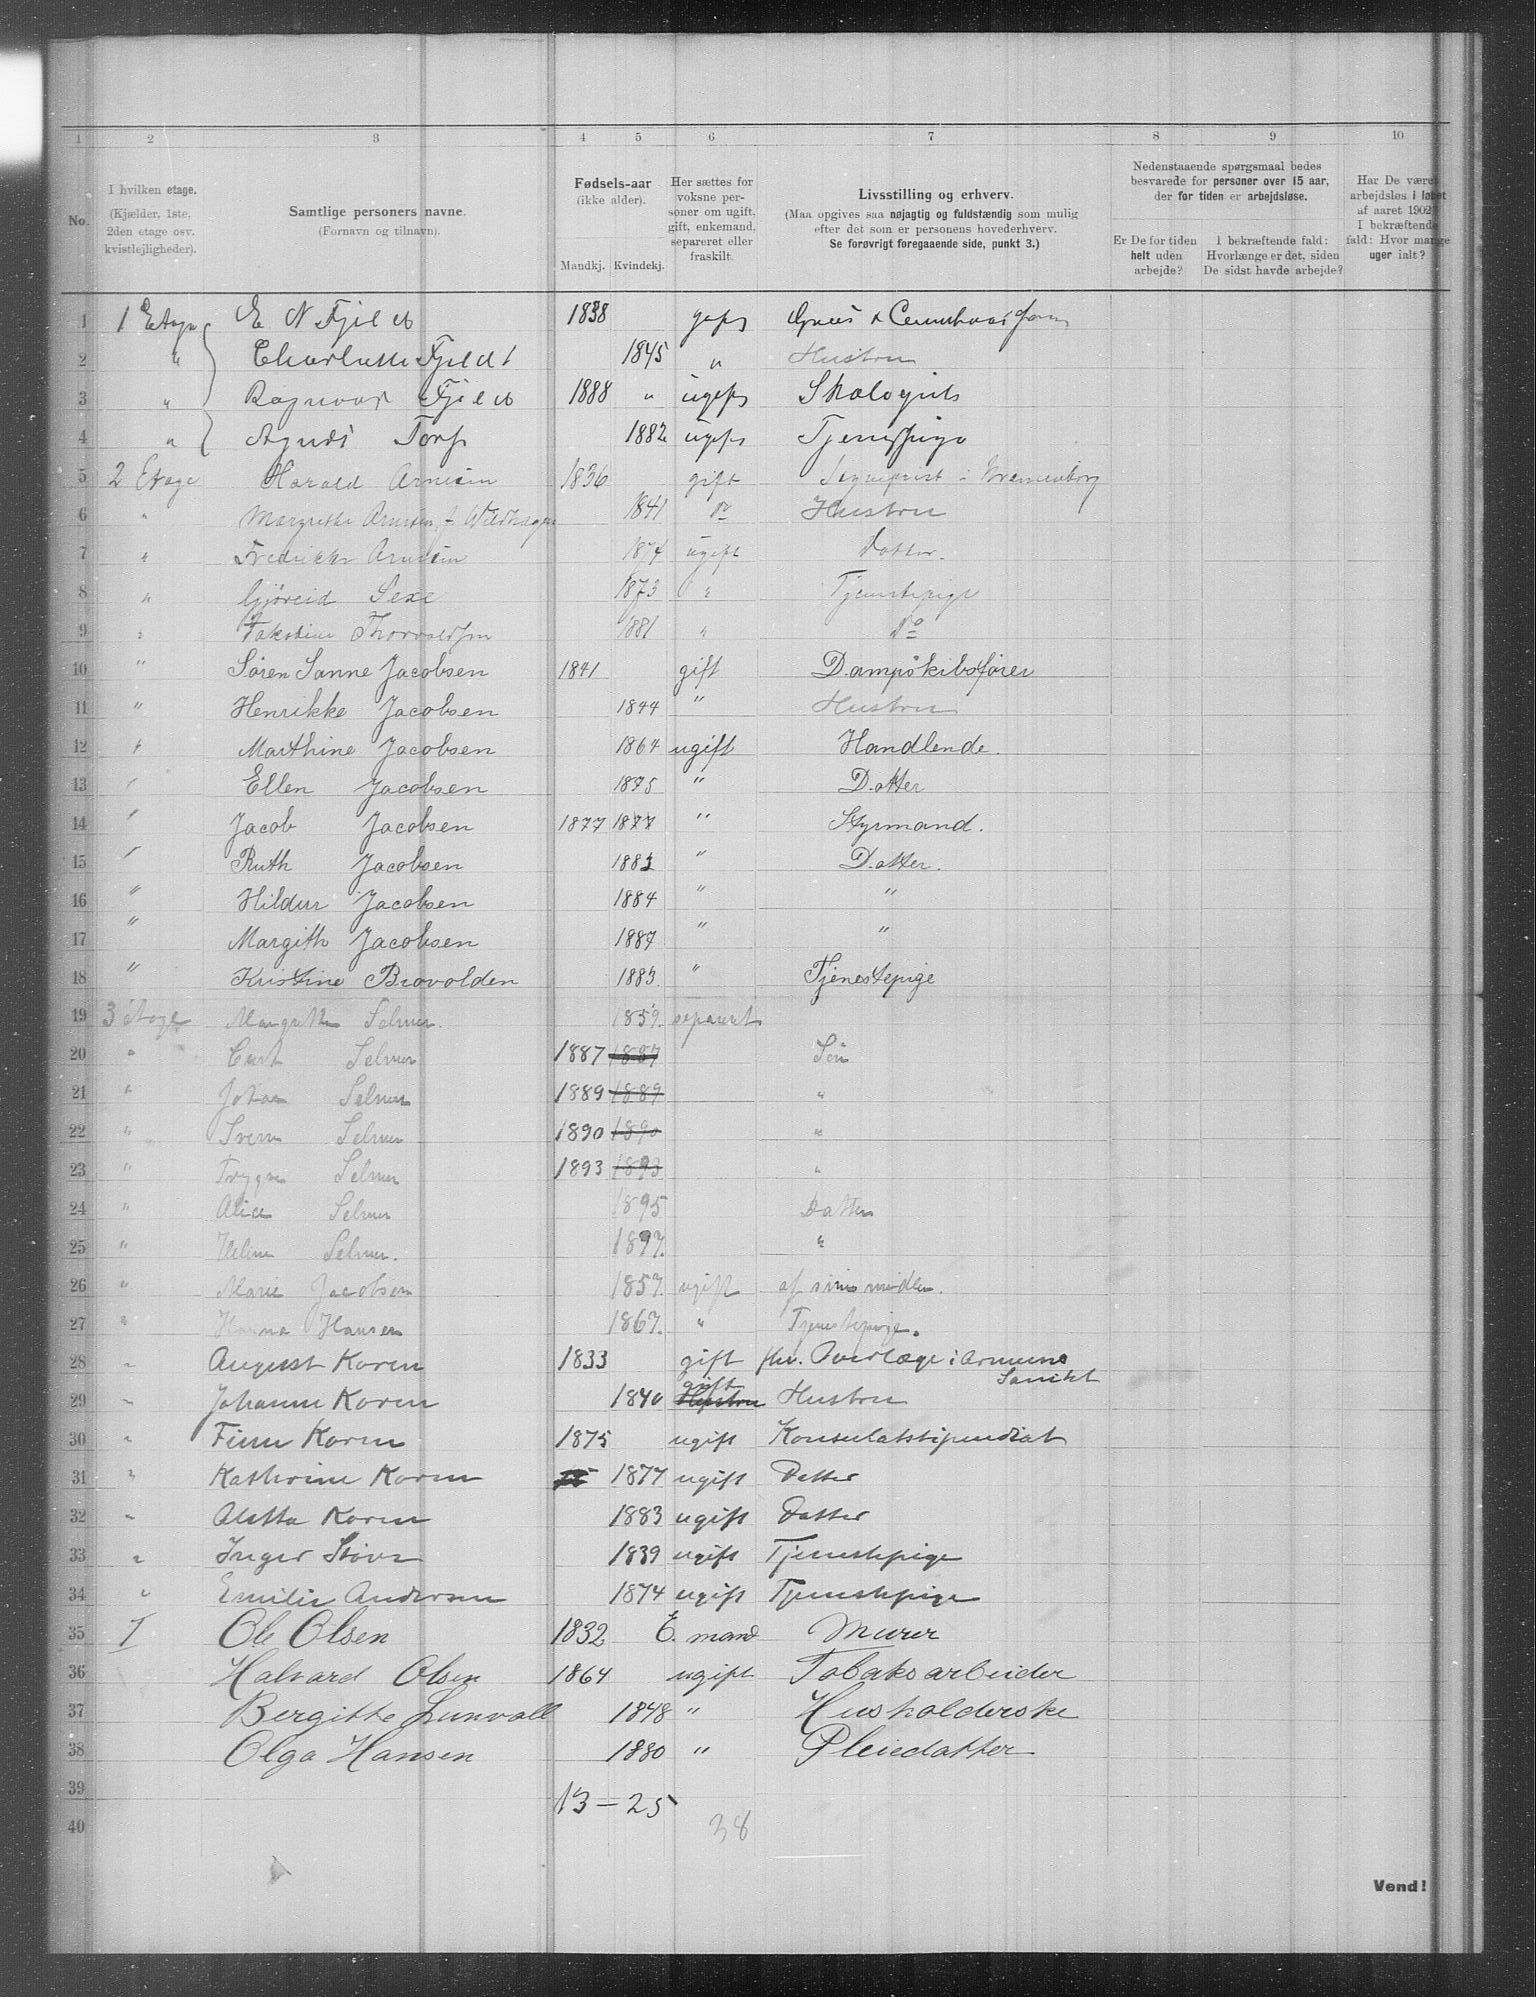 1 2 3 4 5 6 7 8 9 10
No.
I hvilken etage.
(Kjælder, 1ste,
2den etage osv.
kvistlejligheder).
Samtlige personers navne.
(Fornavn og tilnavn).
Fødsels-aar
(ikke alder).
Mandkj. Kvindekj.
Her sættes for
voksne per-
soner om ugift,
gift, enkemand,
separeret eller
fraskilt.
Livsstilling og erhverv.
(Maa opgives saa nøjagtig og fuldstændig som mulig
efter det som er personens hovederhverv.
Se forøvrigt foregaaende side, punkt 3.)
Nedenstaaende spørgsmaal bedes
besvarede for personer over 15 aar,
der for tiden er arbejdsløse.
Er De for tiden
helt uden
arbejde?
I bekræftende fald:
Hvorlænge er det, siden
De sidst havde arbejde?
Har De været
arbejdsløs i løbet
af aaret 1902?
I bekræftende
fald: Hvor mange
uger ialt?
1 1 Etage E N Fjeldt 1838 gift
2 " Charlotte Fjeldt 1845 " Hustru
3 " Ragnvar Fjeldt 1888 " ugift Skolegut
4 " Agnes Torp 1882 ugift Tjenestpige
5 2 Etage Harald Arnesen 1836 gift Sogneprest i
6 " Margrethe Arnesen f. Wildhagen 1841 do Hustru
7 " Fredrikke Arnesen 1874 ugift Datter.
8 " Gjöreid Sexe 1873 " Tjenestepige
9 " Thorvaldsen 1881 " do
10 " Sören Sanne Jacobsen 1841 gift Dampskibsförer
11 " Henrikke Jacobsen 1844 " Hustru
12 " Marthine Jacobsen 1864 ugift Handlende.
13 " Ellen Jacobsen 1875 " Datter
14 " Jacob Jacobsen 1877 1877 " Styrmand.
15 " Ruth Jacobsen 1883 " Datter.
16 " Hildur Jacobsen 1884 " "
17 " Margith Jacobsen 1887 " "
18 " Kristine Brovolden 1883 " Tjenestepige
19 3 Etage Margrethe Selmer. 1859. separeret
20 " Curt Selmer 1887 1887 Sön
21 " Johan Selmer 1889 1889 "
22 " Svern Selmer 1890 1890 "
23 " Trygve Selmer 1893 1893 "
24 " Alice Selmer 1895 Datter
25 " Helene Selmer. 1897. "
26 " Marie Jacobsen 1857. ugift af sine midler.
27 " Hanna Hansen 1867. " Tjenestepige.
28 " August Koren 1833 gift fhv. Overlæge i Armeens
Sanitet
29 " Johanne Koren 1840 gift Hustru Hustru
30 " Finn Koren 1875 ugift Konsulatstipendiat
31 " Kathrine Koren 1877 ugift Datter
32 " Aletta Koren 1883 ugift Datter
33 " Inger Stöve 1839 ugift Tjenestepige
34 " Emilie Andersen 1874 ugift Tjenestepige
35 1 Ole Olsen 1832 E. mand Murer
36 Halvard Olsen 1864 ugift Tobaksarbeider
37 Bergitte Lunvall 1848 " Husholderske
38 Olga Hansen 1880 " Pleiedatter
39 13 – 25
40 38
Vend!